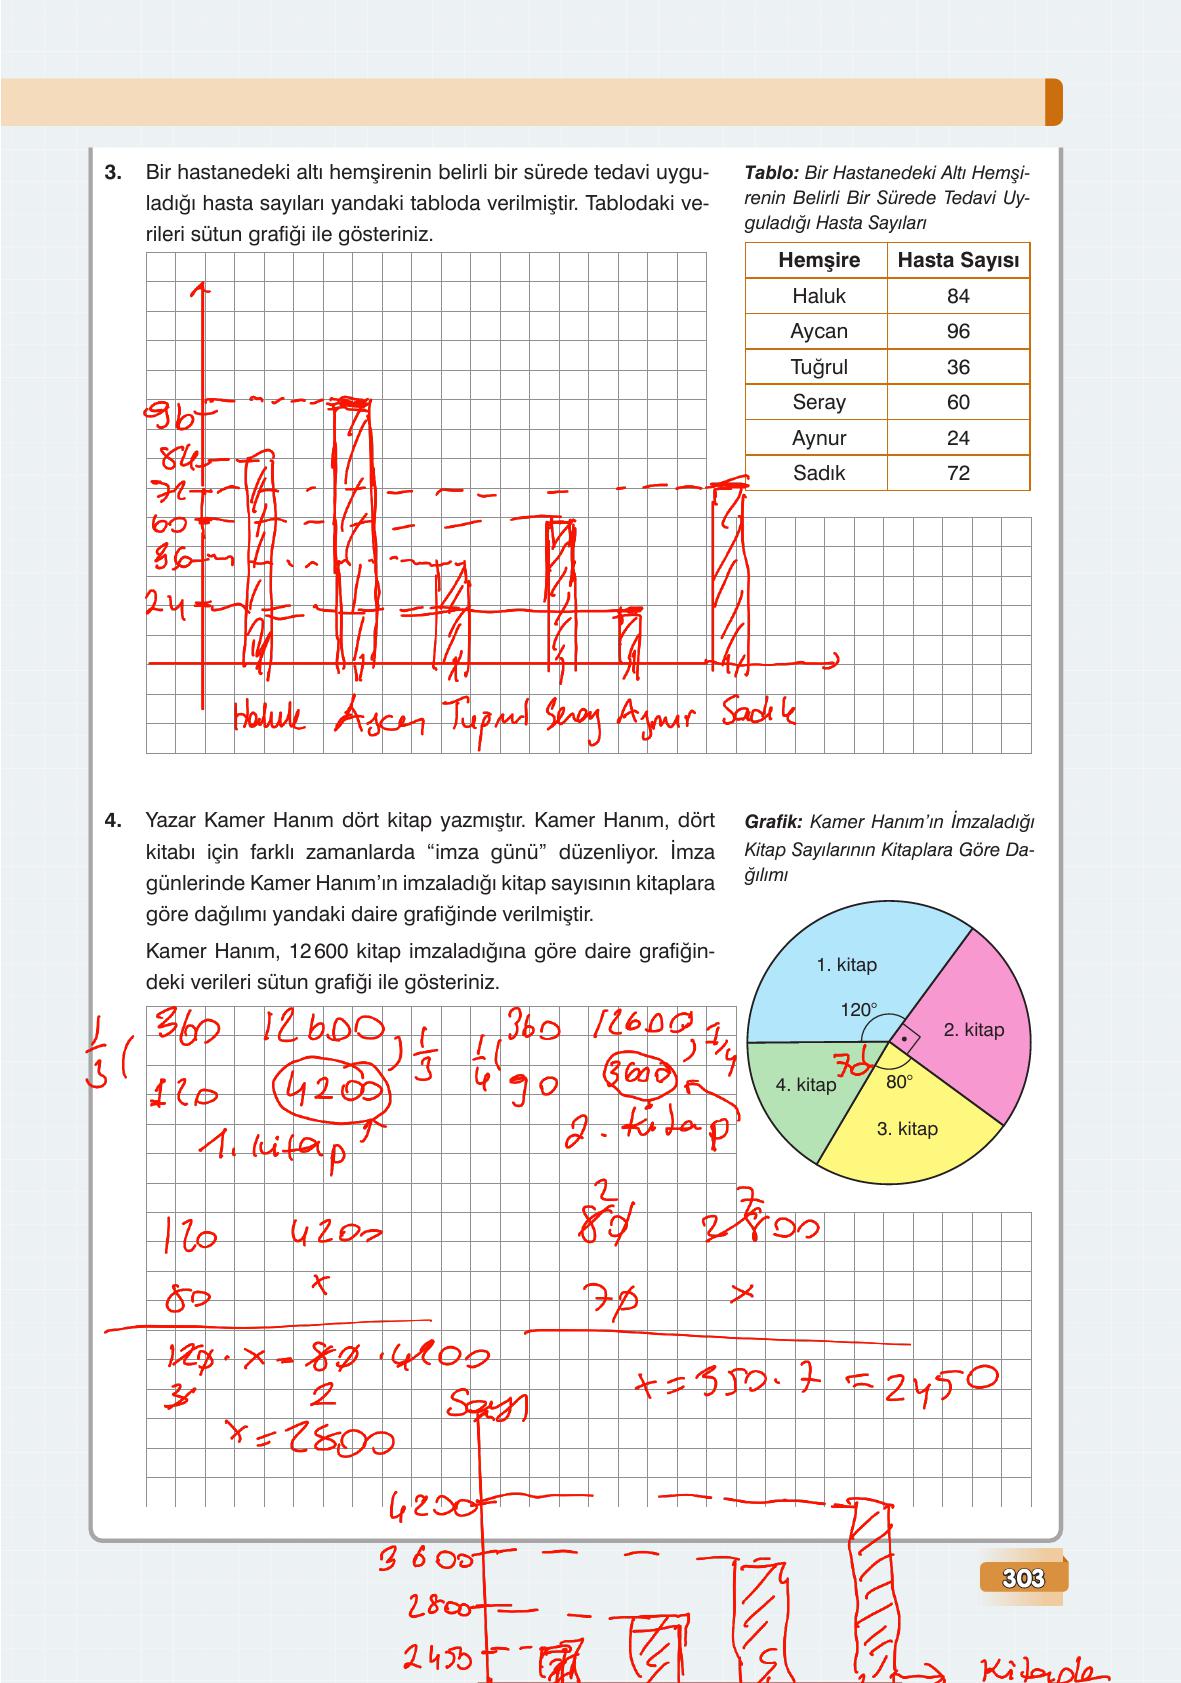 3. Bir hastanedeki altı hemşirenin belirli bir sürede tedavi uygu-
ladığı hasta sayıları yandaki tabloda verilmiştir. Tablodaki ve-
rileri sütun grafiği ile gösteriniz.
Tablo: Bir Hastanedeki Altı Hemşi-
renin Belirli Bir Sürede Tedavi Uy-
guladığı Hasta Sayıları
Hemşire Hasta Sayısı
Haluk 84
Aycan 96
Tuğrul 36
Seray 60
Aynur 24
Sadık 72
96
84
72
60
36
24
Haluk Aycan Tuğrul Seray Aynur Sadık
4. Yazar Kamer Hanım dört kitap yazmıştır. Kamer Hanım, dört
kitabı için farklı zamanlarda “imza günü” düzenliyor. İmza
günlerinde Kamer Hanım’ın imzaladığı kitap sayısının kitaplara
göre dağılımı yandaki daire grafiğinde verilmiştir.
Kamer Hanım, 12 600 kitap imzaladığına göre daire grafiğin-
deki verileri sütun grafiği ile gösteriniz.
Grafik: Kamer Hanım’ın İmzaladığı
Kitap Sayılarının Kitaplara Göre Da-
ğılımı
1. kitap
120°
2. kitap
70
4. kitap
80°
3. kitap
1/3 ( 360 12600 ) 1/3
120 4200
1. kitap
1/4 ( 360 12600 ) 1/4
90 3600
2. kitap
120 4200
80 x
120 · x = 80 · 4200
3 2
x = 2800
2 7
80 2800
70 x
x = 350 · 7 = 2450
Sayı
4200
3600
2800
2450
303